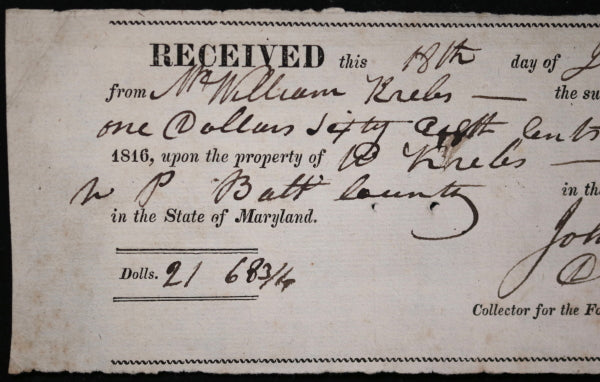 RECEIVED this 18th day of J
from Mr William Krebs — the su
one Dollars Sixty Eight Cents
1816, upon the property of W Krebs —
W P Balt County in th
in the State of Maryland.
Joh
Dolls. 21 68 3/4 D
Collector for the Fo